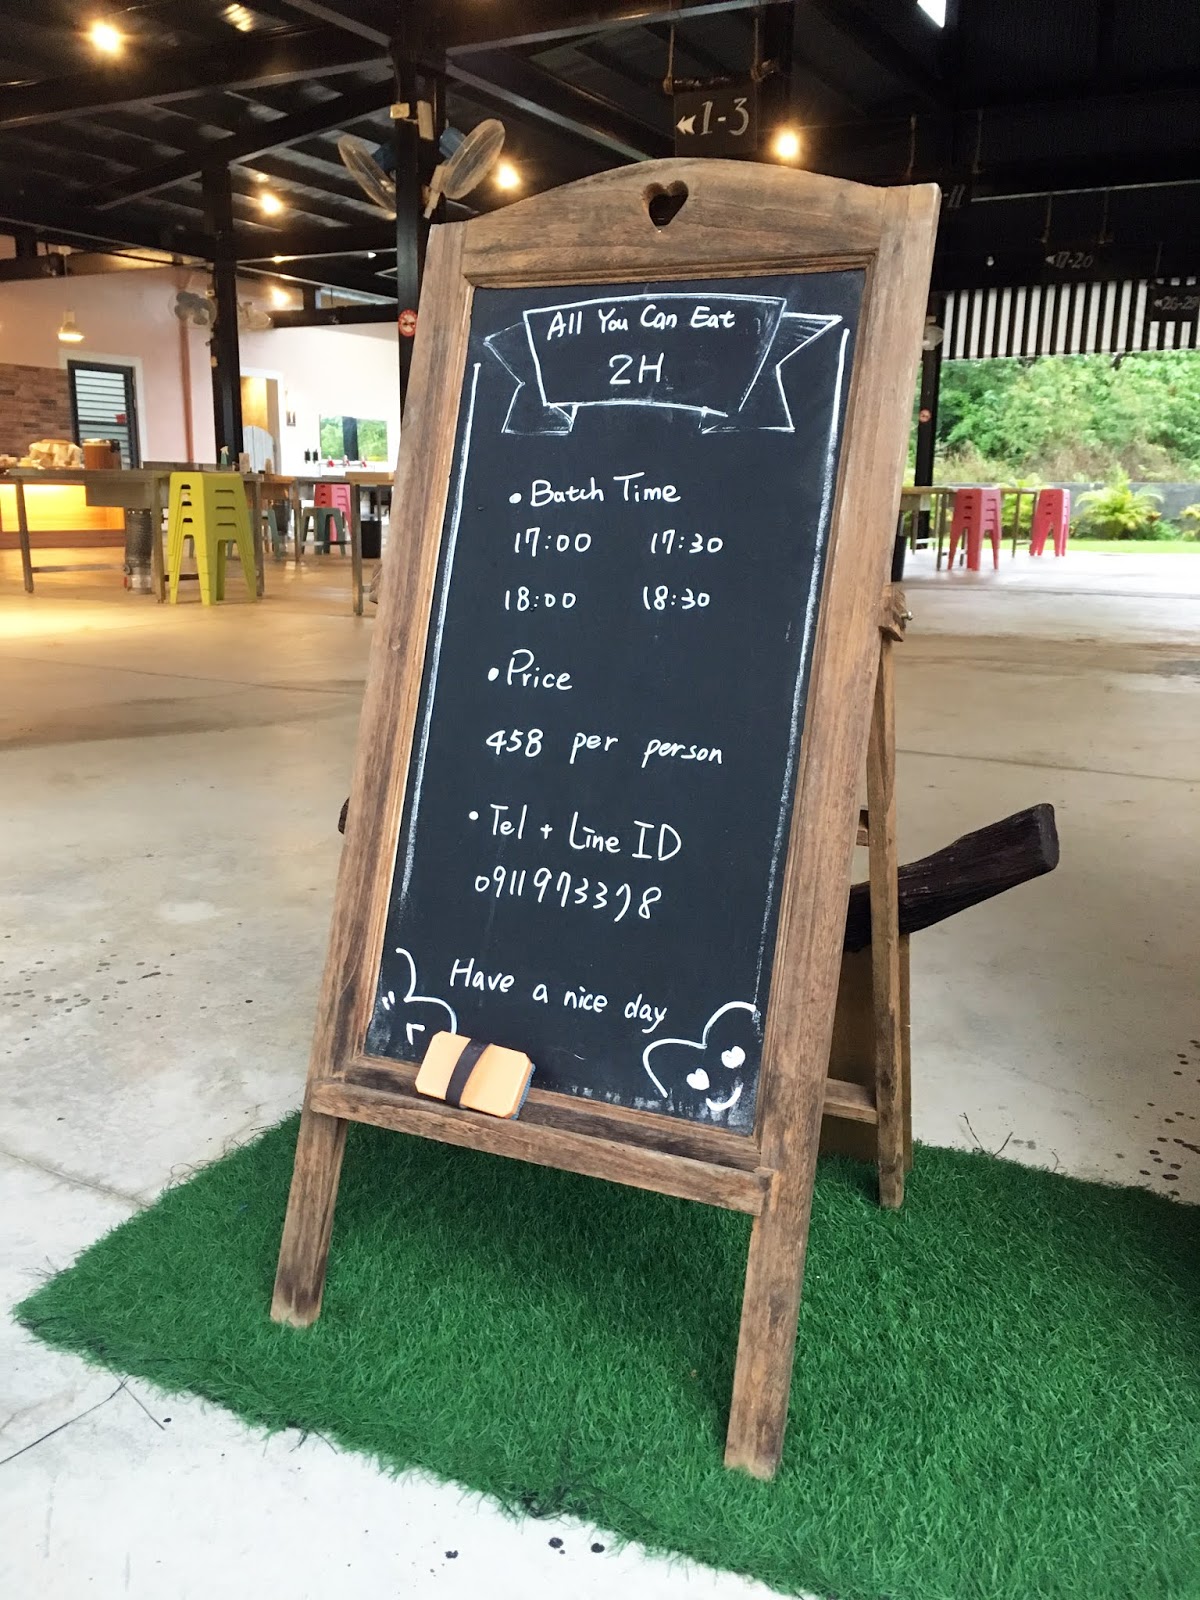 1-3
17-20
All You Can Eat
2H
• Batch Time
17:00 17:30
18:00 18:30
• Price
458 per person
• Tel + Line ID
0911973378
Have a nice day